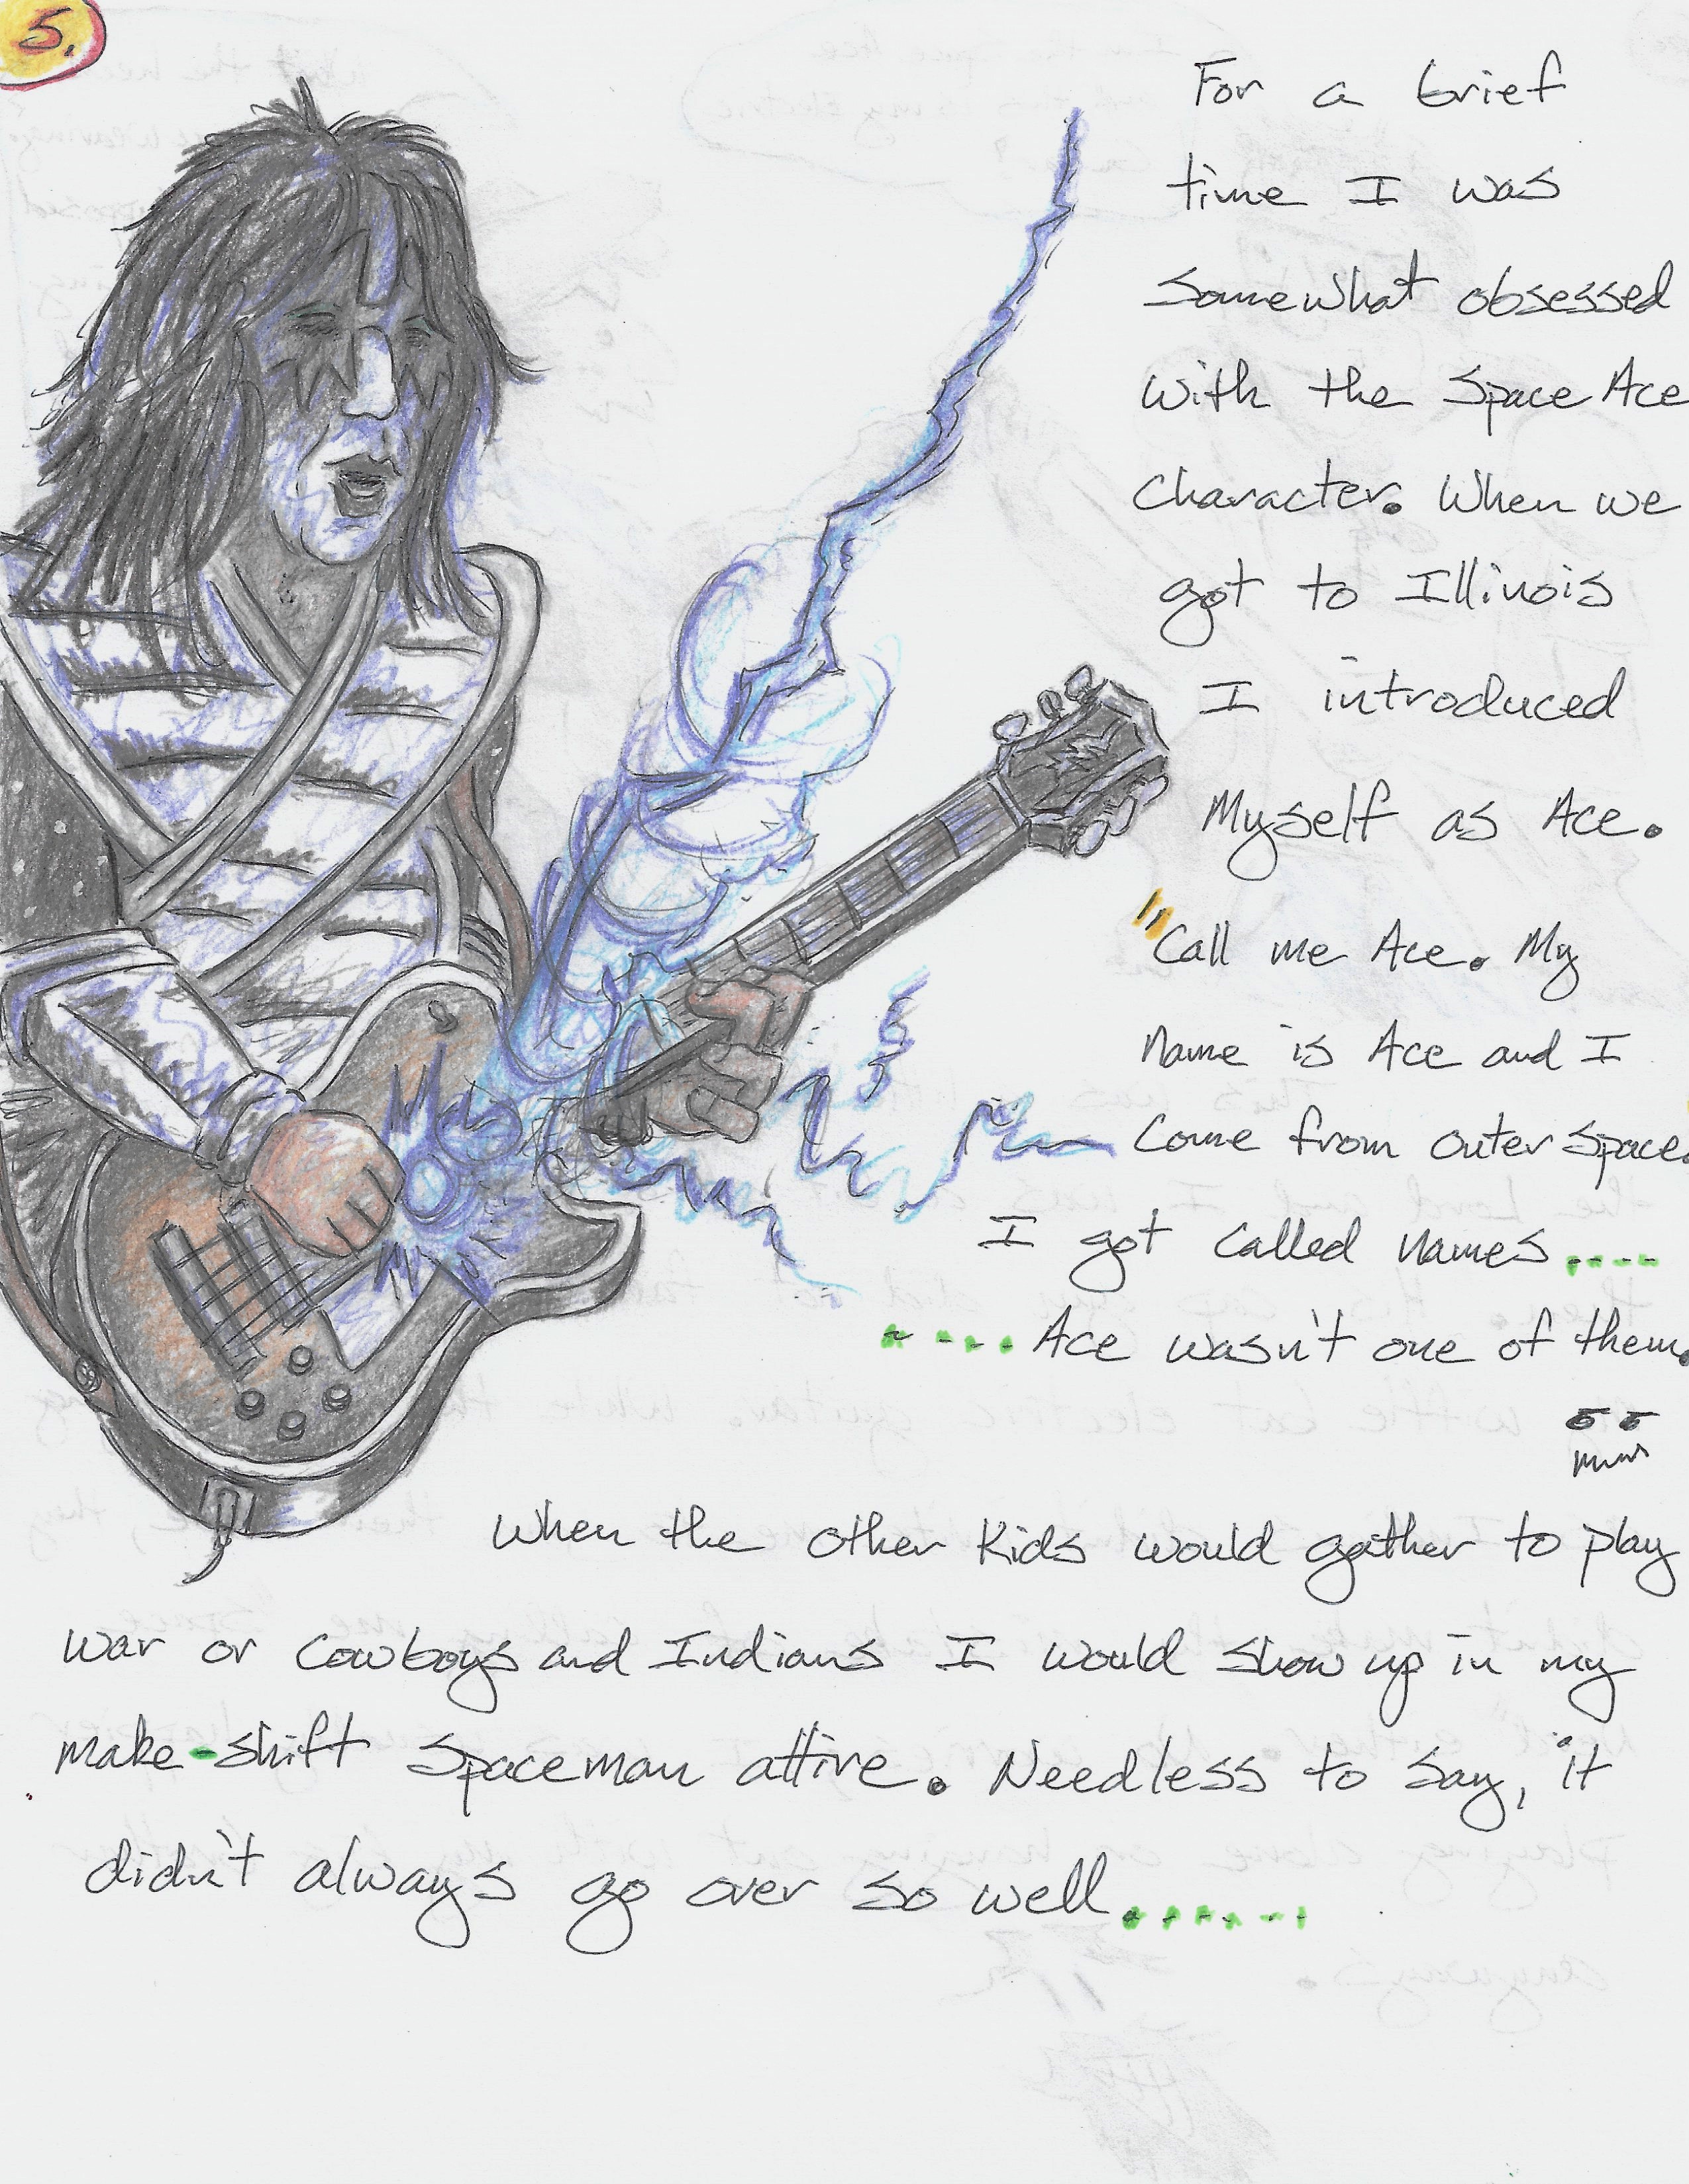 5.
For a brief
time I was
somewhat obsessed
with the Space Ace
character. When we
got to Illinois
I introduced
Myself as Ace.
"Call me Ace. My
name is Ace and I
come from outer space.
I got called names....
.... Ace wasn't one of them.
When the other kids would gather to play
war or Cowboys and Indians I would show up in my
make-shift spaceman attire. Needless to say, it
didn't always go over so well.......